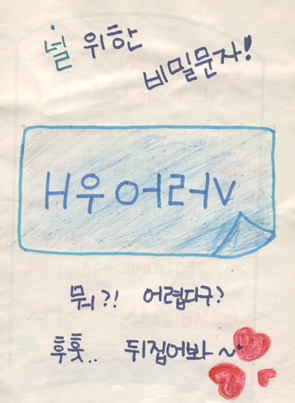 널 위한
비밀문자!
H우 어러V
뭐?! 어렵다구?
후훗.. 뒤집어봐~